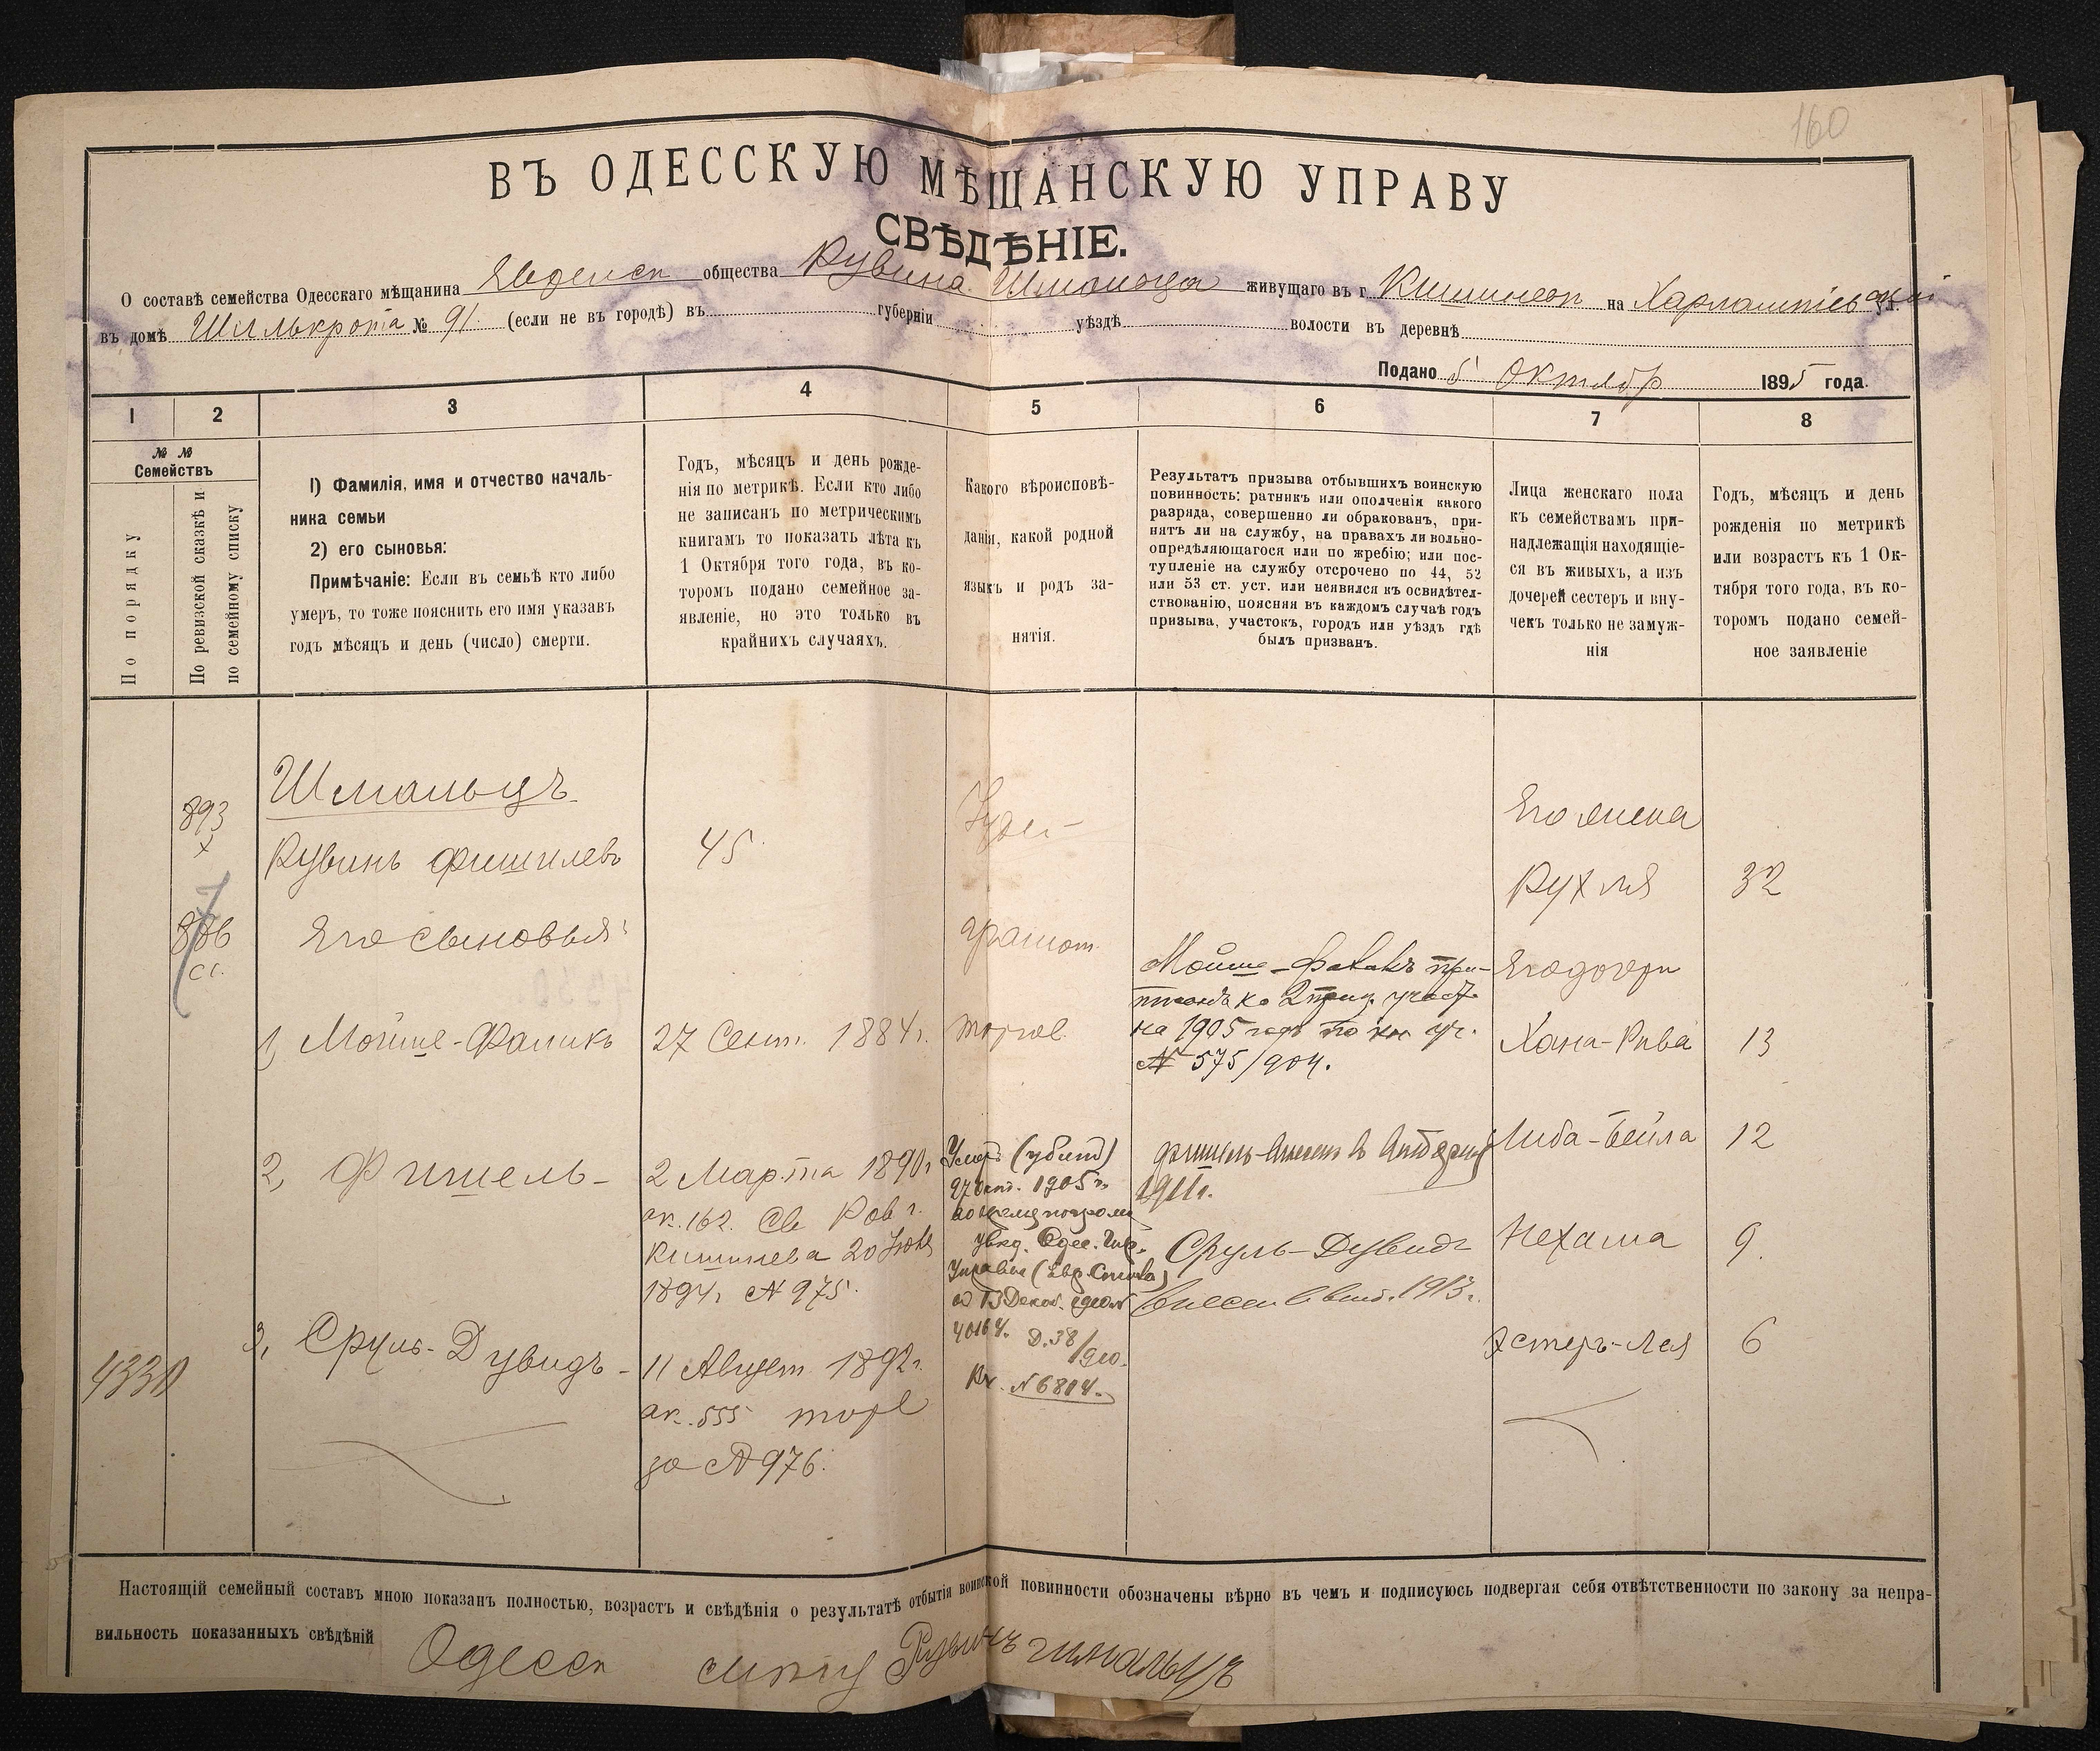 160
ВЪ ОДЕССКУЮ МѢЩАНСКУЮ УПРАВУ
СВѢДѢНІЕ.
О составѣ семейства Одесскаго мѣщанина общества Рувина Шмальца живущаго въ г. Кишинев на Харлампіевской ул.
въ домѣ Шилькрота № 91. (если не въ городѣ) въ губерніи уѣздѣ волости въ деревнѣ
Подано 5 Октябр 1895 года.
1 2 3 4 5 6 7 8
№ №
Семействъ
По порядку
По ревизской сказкѣ и
по семейному списку
1) Фамилія, имя и отчество началь-
ника семьи
2) его сыновья:
Примѣчаніе: Если въ семьѣ кто либо
умеръ, то тоже пояснить его имя указавъ
годъ мѣсяцъ и день (число) смерти.
Годъ, мѣсяцъ и день рожде-
нія по метрикѣ. Если кто либо
не записанъ по метрическимъ
книгамъ то показать лѣта къ
1 Октября того года, въ ко-
торомъ подано семейное за-
явленіе, но это только въ
крайнихъ случаяхъ.
Какого вѣроисповѣ-
данія, какой родной
языкъ и родъ за-
нятія.
Результатъ призыва отбывшихъ воинскую
повинность: ратникъ или ополченія какого
разряда, совершенно ли обракованъ, при-
нятъ ли на службу, на правахъ ли вольно-
опредѣляющагося или по жребію; или пос-
тупленіе на службу отсрочено по 44, 52
или 53 ст. уст. или неявился къ освидѣтел-
ствованію, поясняя въ каждомъ случаѣ годъ
призыва, участокъ, городъ или уѣздъ гдѣ
былъ призванъ.
Лица женскаго пола
къ семействамъ при-
надлежащія находящіе-
ся въ живыхъ, а изъ
дочерей сестеръ и вну-
чекъ только не замуж-
нія
Годъ, мѣсяцъ и день
рожденія по метрикѣ
или возрастъ къ 1 Ок-
тября того года, въ ко-
торомъ подано семей-
ное заявленіе
893
Шмальцъ
Рувинъ Фишилевъ 45.
Его сыновья:
1, Мойше-Фаликъ 27 Сент. 1884 г.
2, Фишель- 2 Марта 1890 г
ак. 162. Св Рав г.
Кишинева 20 Іюня
1894 г № 975.
3, Сруль-Дувидъ - 11 Август 1892 г.
ак. 555 тоже
за № 976.
4330
Іудей
грамот.
торгов.
Умеръ (убитъ)
27 Окт. 1905 г.
во время погрома
увѣд. Одес. Гор.
Управы
Д. 38/910.
Вх. № 6804.
Мойше-Фаликъ при-
писанъ ко 2 приз. участ.
на 1905 годъ
№ 575/904.
1911 г.
Сруль-Дувидъ
внесен 1913 г.
Его жена
Рухля 32
Его дочери
Хана-Рива 13
Либа-Бейла 12
Нехама 9.
Эстеръ-Лея 6
Настоящій семейный составъ мною показанъ полностью, возрастъ и свѣдѣнія о результатѣ отбытія воинской повинности обозначены вѣрно въ чемъ и подписуюсь подвергая себя отвѣтственности по закону за непра-
вильность показанныхъ свѣдѣній
Рувинъ Шмальцъ